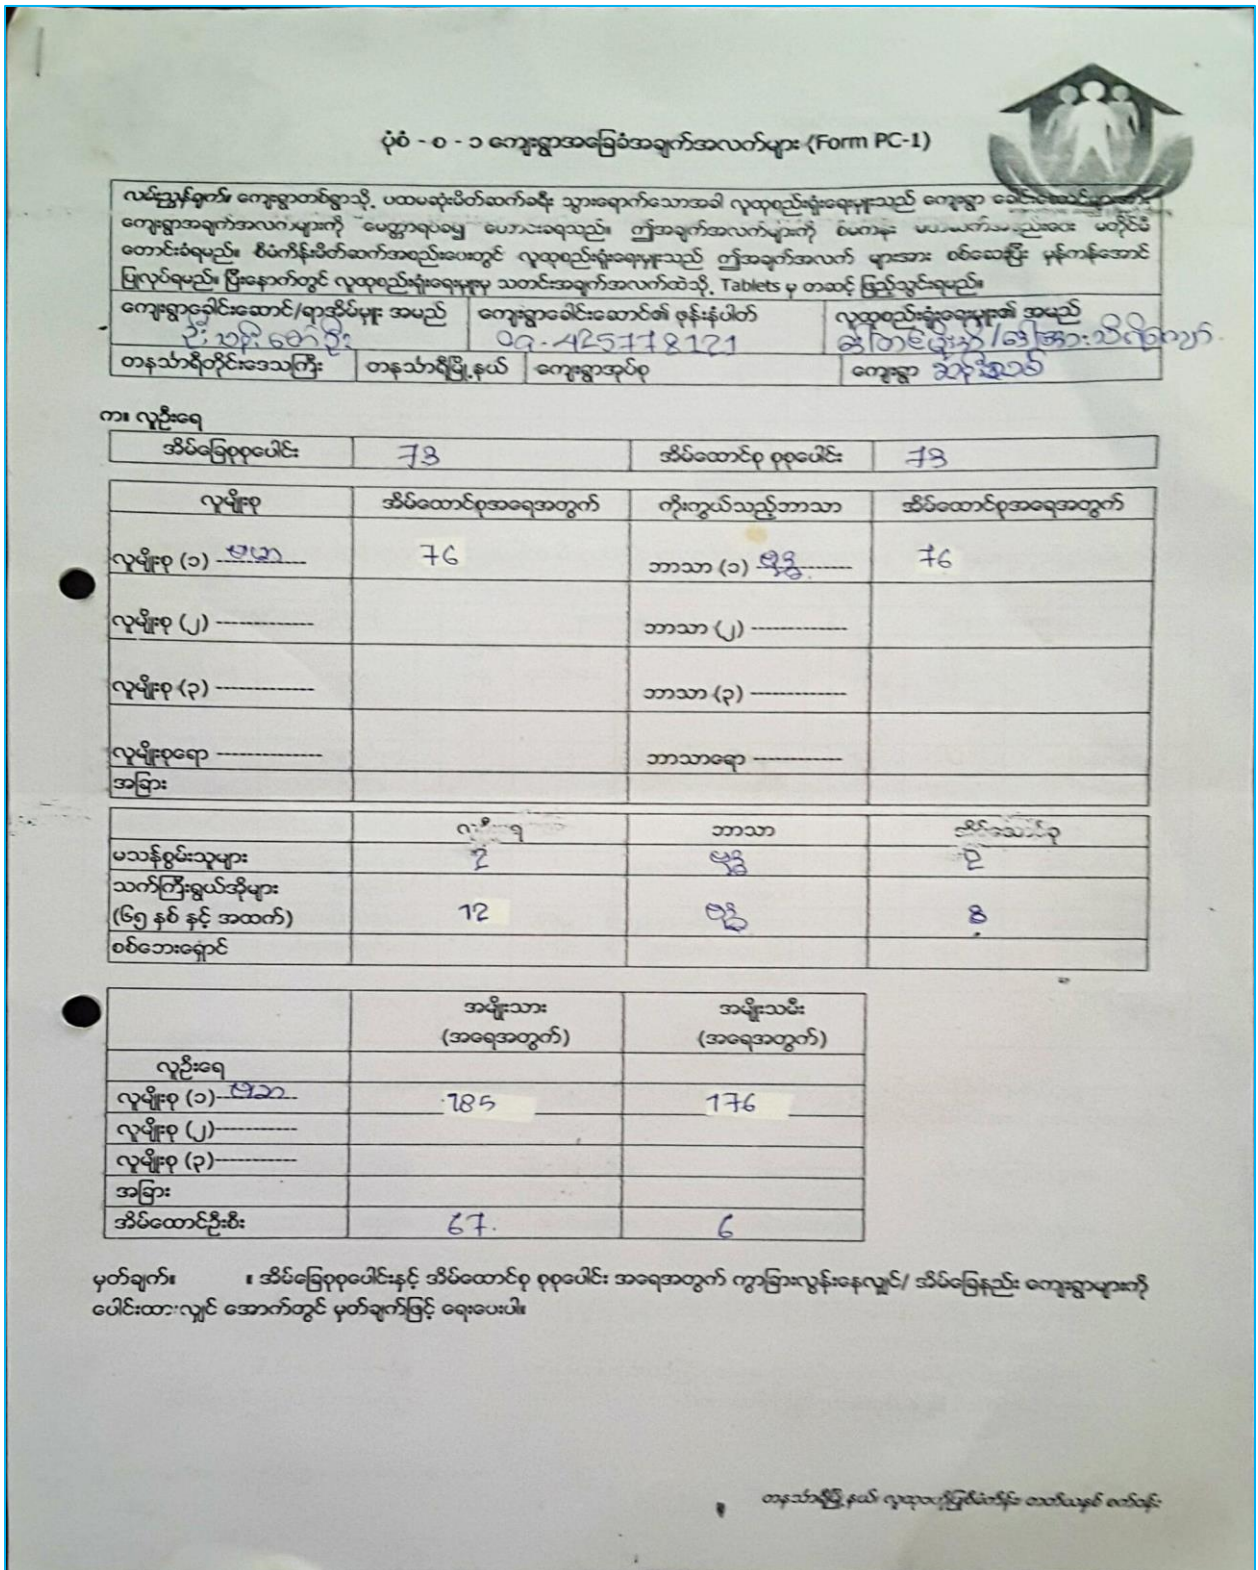 ပုံစံ - စ - ၁ ကျေးရွာအခြေခံအချက်အလက်များ (Form PC-1)
လမ်းညွှန်ချက်။ ကျေးရွာတစ်ရွာသို့ ပထမဆုံးမိတ်ဆက်ခရီး သွားရောက်သောအခါ လူထုစည်းရုံးရေးမှူးသည် ကျေးရွာ ခေါင်းဆောင်များအား
ကျေးရွာအချက်အလက်များကို မေတ္တာရပ်ခံ၍ တောင်းခံရသည်။ ဤအချက်အလက်များကို စီမံကိန်း မိတ်ဆက်အစည်းဝေး မတိုင်မီ
တောင်းခံရမည်။ စီမံကိန်းမိတ်ဆက်အစည်းဝေးတွင် လူထုစည်းရုံးရေးမှူးသည် ဤအချက်အလက် များအား စစ်ဆေးပြီး မှန်ကန်အောင်
ပြုလုပ်ရမည်။ ပြီးနောက်တွင် လူထုစည်းရုံးရေးမှူးမှ သတင်းအချက်အလက်ထဲသို့ Tablets မှ တဆင့် ဖြည့်သွင်းရမည်။
ကျေးရွာခေါင်းဆောင်/ရာအိမ်မှူး အမည် ကျေးရွာခေါင်းဆောင်၏ ဖုန်းနံပါတ် လူထုစည်းရုံးရေးမှူး၏ အမည်
09-425778121
တနင်္သာရီတိုင်းဒေသကြီး တနင်္သာရီမြို့နယ် ကျေးရွာအုပ်စု ကျေးရွာ
က။ လူဦးရေ
အိမ်ခြေစုစုပေါင်း 73 အိမ်ထောင်စု စုစုပေါင်း 73
လူမျိုးစု အိမ်ထောင်စုအရေအတွက် ကိုးကွယ်သည့်ဘာသာ အိမ်ထောင်စုအရေအတွက်
လူမျိုးစု (၁) ဗမာ 76 ဘာသာ (၁) ဗုဒ္ဓ 76
လူမျိုးစု (၂) ------------- ဘာသာ (၂) -------------
လူမျိုးစု (၃) ------------- ဘာသာ (၃) -------------
လူမျိုးစုရော -------------- ဘာသာရော ------------
အခြား
လူဦးရေ ဘာသာ အိမ်ထောင်စု
မသန်စွမ်းသူများ 2 ဗုဒ္ဓ 2
သက်ကြီးရွယ်အိုများ
(၆၅ နှစ် နှင့် အထက်) 12 ဗုဒ္ဓ 8
စစ်ဘေးရှောင်
အမျိုးသား အမျိုးသမီး
(အရေအတွက်) (အရေအတွက်)
လူဦးရေ
လူမျိုးစု (၁) ဗမာ 185 176
လူမျိုးစု (၂)-----------
လူမျိုးစု (၃)-----------
အခြား
အိမ်ထောင်ဦးစီး 67 6
မှတ်ချက်။ ။ အိမ်ခြေစုစုပေါင်းနှင့် အိမ်ထောင်စု စုစုပေါင်း အရေအတွက် ကွာခြားလွန်းနေလျှင်/ အိမ်ခြေနည်း ကျေးရွာများကို
ပေါင်းထားလျှင် အောက်တွင် မှတ်ချက်ဖြင့် ရေးပေးပါ။
တနင်္သာရီမြို့နယ်၊ လူထုဗဟိုပြုစီမံကိန်း၊ တတိယနှစ် စက်ဝန်း